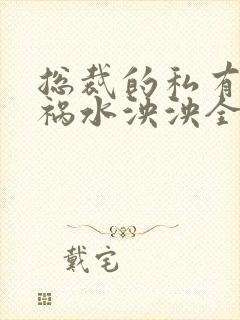 总裁的私有
祸水泱泱全
戴宅